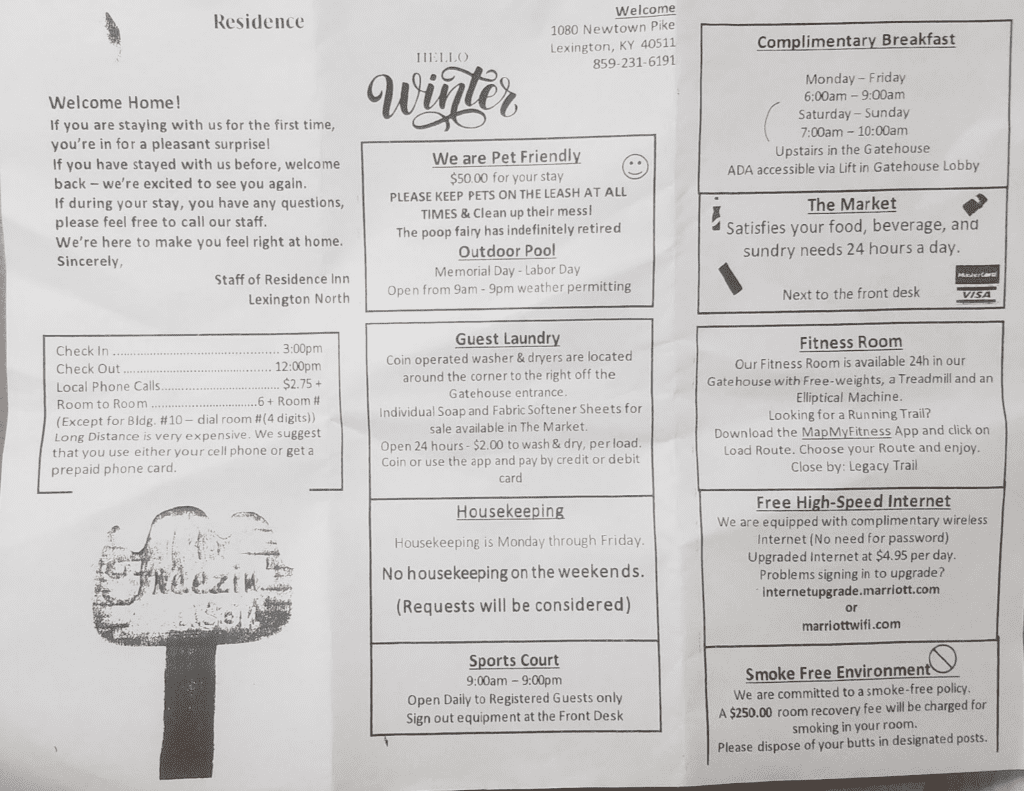 Residence
Welcome Home!
If you are staying with us for the first time,
you're in for a pleasant surprise!
If you have stayed with us before, welcome
back – we're excited to see you again.
If during your stay, you have any questions,
please feel free to call our staff.
We're here to make you feel right at home.
Sincerely,
Staff of Residence Inn
Lexington North
Check In ............................................... 3:00pm
Check Out .......................................... 12:00pm
Local Phone Calls................................. $2.75 +
Room to Room ..............................6 + Room #
(Except for Bldg. #10 – dial room #(4 digits))
Long Distance is very expensive. We suggest
that you use either your cell phone or get a
prepaid phone card.
Freezin'
Welcome
1080 Newtown Pike
Lexington, KY 40511
859-231-6191
HELLO
Winter
We are Pet Friendly
$50.00 for your stay
PLEASE KEEP PETS ON THE LEASH AT ALL
TIMES & Clean up their mess!
The poop fairy has indefinitely retired
Outdoor Pool
Memorial Day - Labor Day
Open from 9am - 9pm weather permitting
Guest Laundry
Coin operated washer & dryers are located
around the corner to the right off the
Gatehouse entrance.
Individual Soap and Fabric Softener Sheets for
sale available in The Market.
Open 24 hours - $2.00 to wash & dry, per load.
Coin or use the app and pay by credit or debit
card
Housekeeping
Housekeeping is Monday through Friday.
No housekeeping on the weekends.
(Requests will be considered)
Sports Court
9:00am – 9:00pm
Open Daily to Registered Guests only
Sign out equipment at the Front Desk
Complimentary Breakfast
Monday – Friday
6:00am – 9:00am
Saturday – Sunday
7:00am – 10:00am
Upstairs in the Gatehouse
ADA accessible via Lift in Gatehouse Lobby
The Market
Satisfies your food, beverage, and
sundry needs 24 hours a day.
Next to the front desk
MasterCard
VISA
Fitness Room
Our Fitness Room is available 24h in our
Gatehouse with Free-weights, a Treadmill and an
Elliptical Machine.
Looking for a Running Trail?
Download the MapMyFitness App and click on
Load Route. Choose your Route and enjoy.
Close by: Legacy Trail
Free High-Speed Internet
We are equipped with complimentary wireless
Internet (No need for password)
Upgraded Internet at $4.95 per day.
Problems signing in to upgrade?
internetupgrade.marriott.com
or
marriottwifi.com
Smoke Free Environment
We are committed to a smoke-free policy.
A $250.00 room recovery fee will be charged for
smoking in your room.
Please dispose of your butts in designated posts.